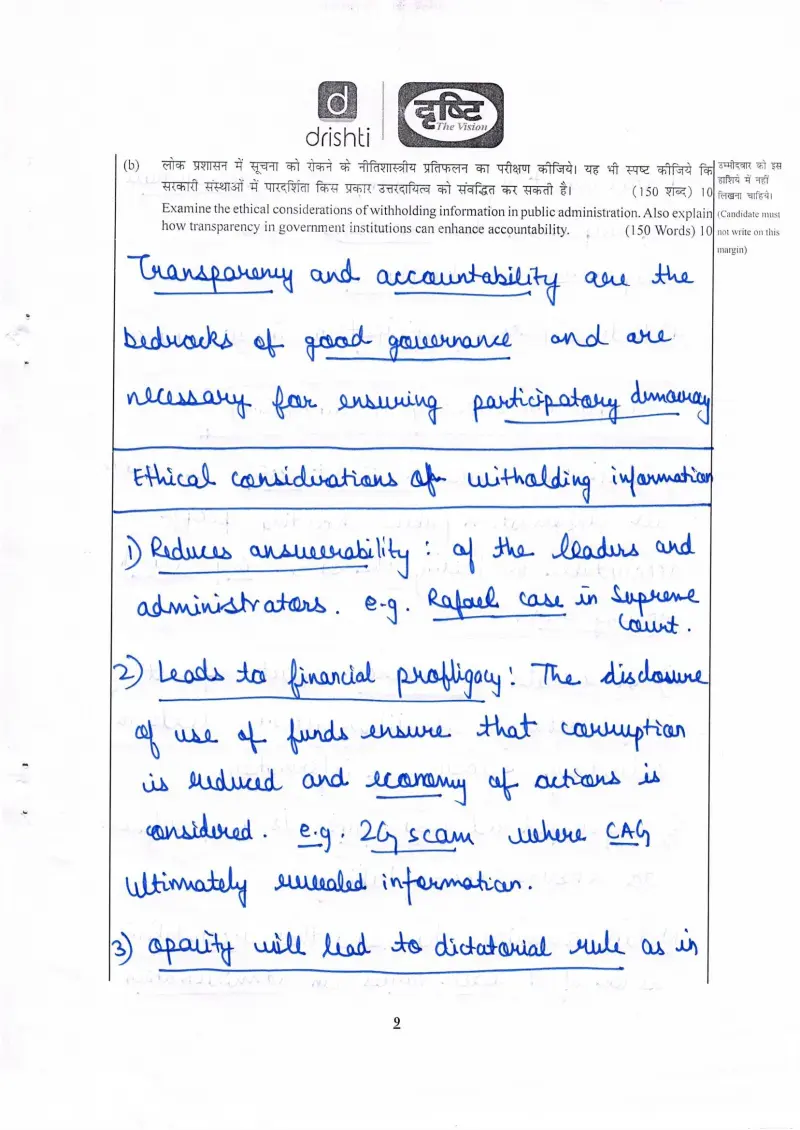 d
drishti
दृष्टि
The Vision
(b) लोक प्रशासन में सूचना को रोकने के नीतिशास्त्रीय प्रतिफलन का परीक्षण कीजिये। यह भी स्पष्ट कीजिये कि
सरकारी संस्थाओं में पारदर्शिता किस प्रकार उत्तरदायित्व को संवर्द्धित कर सकती है। (150 शब्द) 10
Examine the ethical considerations of withholding information in public administration. Also explain
how transparency in government institutions can enhance accountability. (150 Words) 10
उम्मीदवार को इस
हाशिये में नहीं
लिखना चाहिये।
(Candidate must
not write on this
margin)
Transparency and accountability are the
bedrocks of good governance and are
necessary for ensuring participatory democracy
Ethical considerations of witholding information
1) Reduces answerability : of the leaders and
administrators. e.g. Rafael case in Supreme
Court.
2) Leads to financial profligacy: The disclosure
of use of funds ensure that corruption
is reduced and economy of actions is
considered. e.g. 2G scam where CAG
ultimately revealed information.
3) opacity will lead to dictatorial rule as in
2